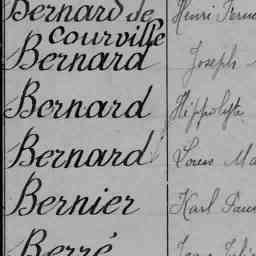 Bernard de Henri
Courville
Bernard Joseph
Bernard Hippolyte
Bernard Louis
Bernier Karl
Berré